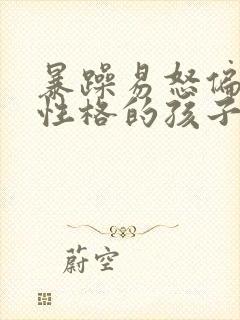 暴躁易怒偏
性格的孩子
蔚空